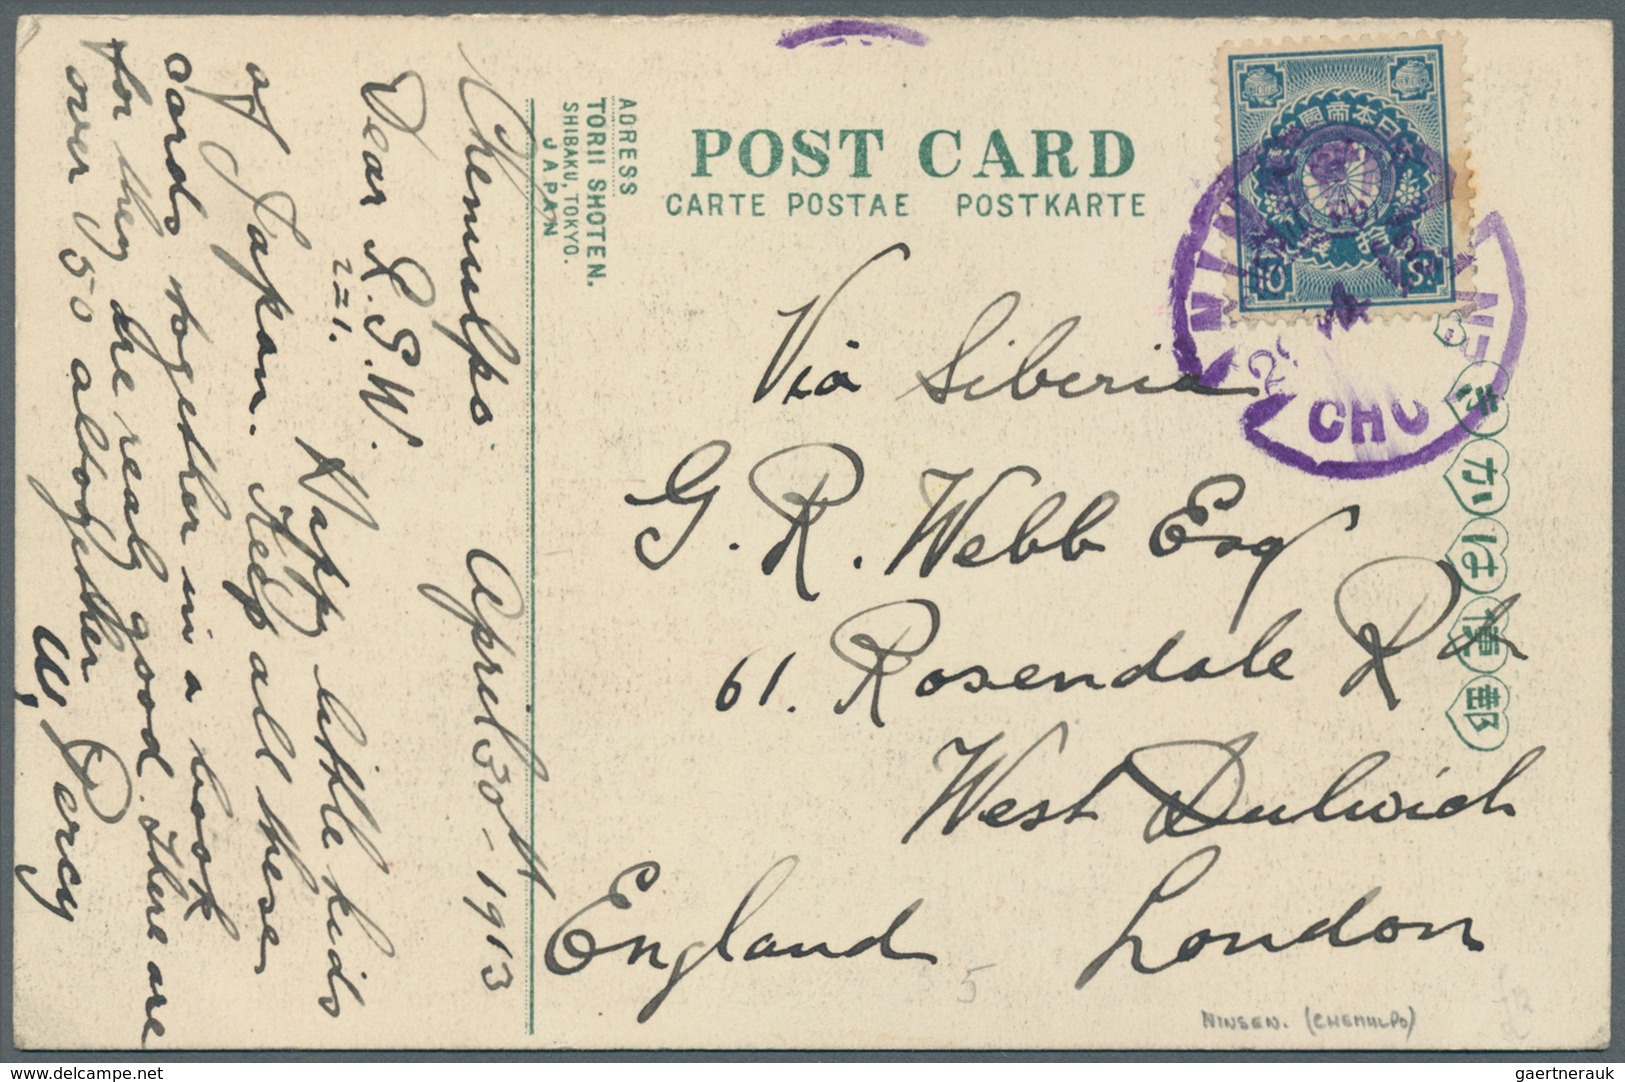 POST CARD
CARTE POSTAE POSTKARTE
ADRESS
TORII SHOTEN.
SHIBAKU, TOKYO.
JAPAN
Chemulpo. April 30th - 1913
Dear L.G.W.
221.
Happy little kids
of Japan. Keep all these
cards together in a book
for they are realy good. There are
over 150 altogether
W. Percy
Via Siberia
G. R. Webb Esq
61. Rosendale Rd
West Dulwich
London
England
10
CHO
きがは便郵
5
NINSEN. (CHEMULPO)
www.delcampe.net
gaertnerauk